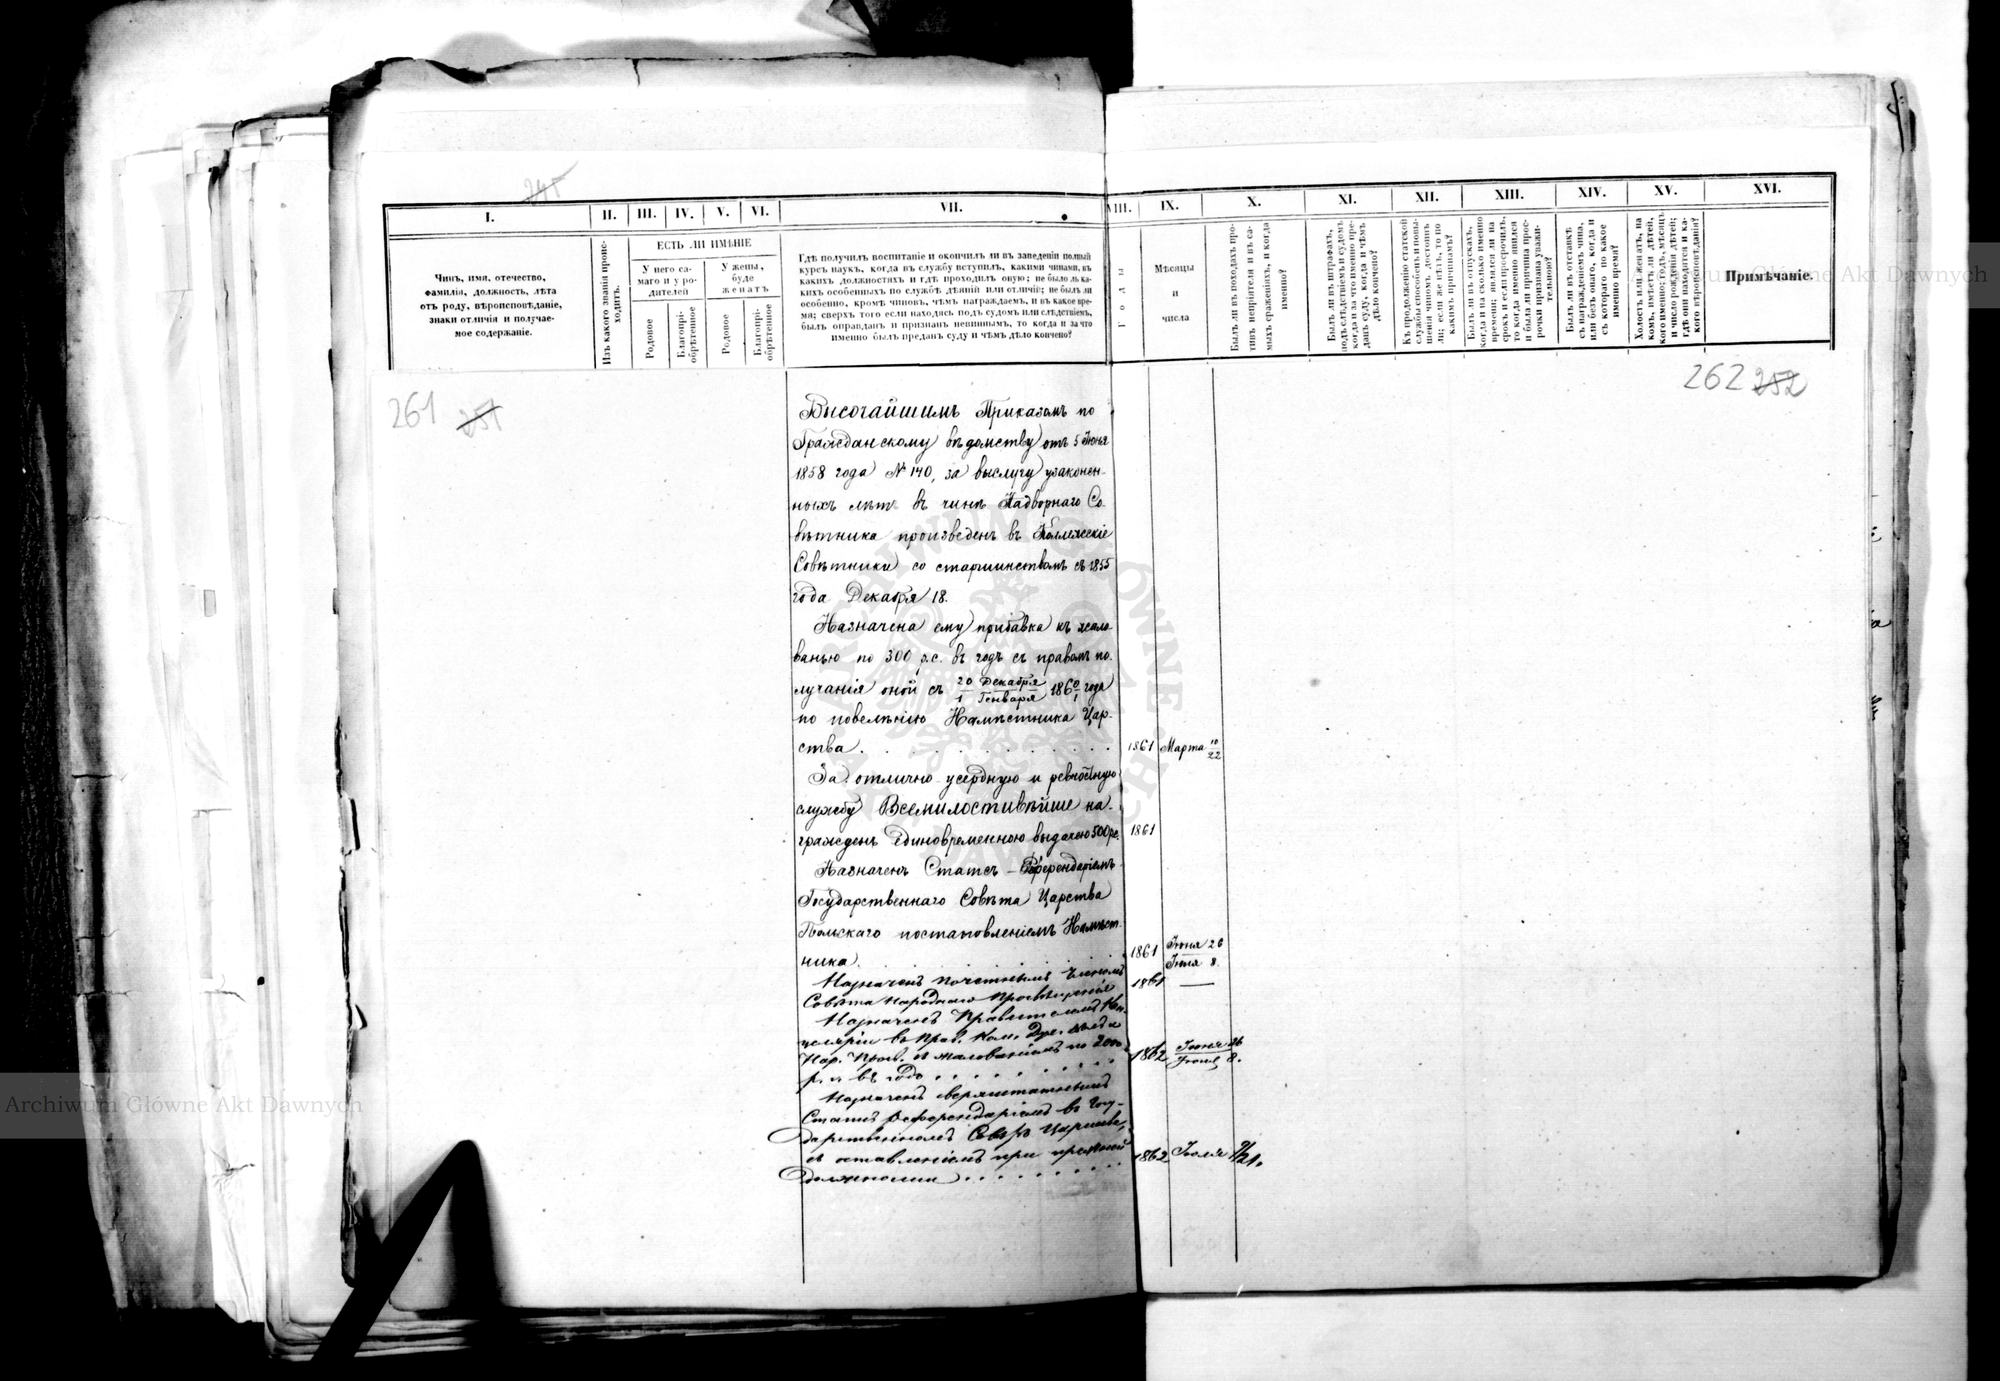 245
I.
II.
III.
IV.
V.
VI.
VII.
VIII.
IX.
X.
XI.
XII.
XIII.
XIV.
XV.
XVI.
Чинъ, имя, отечество,
фамилія, должность, лѣта
отъ роду, вѣроисповѣданіе,
знаки отличія и получае-
мое содержаніе.
Изъ какого званія проис-
ходитъ.
ЕСТЬ ЛИ ИМѢНІЕ
У него са-
маго и у ро-
дителей
У жены,
буде
женатъ
Родовое
Благопрі-
обрѣтенное
Родовое
Благопрі-
обрѣтенное
Гдѣ получилъ воспитаніе и окончилъ ли въ заведеніи полный
курсъ наукъ, когда въ службу вступилъ, какими чинами, въ
какихъ должностяхъ и гдѣ проходилъ оную; не было ль ка-
кихъ особенныхъ по службѣ дѣяній или отличій; не былъ ли
особенно, кромѣ чиновъ, чѣмъ награждаемъ, и въ какое вре-
мя; сверхъ того если находясь подъ судомъ или слѣдствіемъ,
былъ оправданъ и признанъ невиннымъ, то когда и за что
именно былъ преданъ суду и чѣмъ дѣло кончено?
Годы
Мѣсяцы
и
числа
Былъ ли въ походахъ про-
тивъ непріятеля и въ са-
мыхъ сраженіяхъ, и когда
именно?
Былъ ли въ штрафахъ,
подъ слѣдствіемъ и судомъ
когда и за что именно пре-
данъ суду, когда и чѣмъ
дѣло кончено?
Къ продолженію статской
службы способенъ и повы-
шенія чиномъ достоинъ
ли; если же нѣтъ, то по
какимъ причинамъ?
Былъ ли въ отпускахъ,
когда и на сколько именно
времени; являлся ли на
срокъ и если просрочилъ,
то когда именно явился
и была ли причина прос-
рочки признана уважи-
тельною?
Былъ ли въ отставкѣ
съ награжденіемъ чина,
или безъ онаго, когда и
съ котораго по какое
именно время?
Холостъ или женатъ, на
комъ, имѣетъ ли дѣтей,
кого именно; годъ, мѣсяцъ
и число рожденія дѣтей;
гдѣ они находятся и ка-
кого вѣроисповѣданія?
Примѣчаніе.
261 251
262 252
Высочайшимъ Приказомъ по
Гражданскому вѣдомству отъ 5 Іюня
1858 года № 140, за выслугу узаконен-
ныхъ лѣтъ въ чинѣ Надворнаго Со-
вѣтника произведенъ въ Коллежскіе
Совѣтники со старшинствомъ съ 1855
года Декабря 18.
Назначена ему прибавка къ жало-
ванью по 300 р.с. въ годъ съ правомъ по-
лучанія оной съ 20 Декабря / 1 Генваря 1860/1 года
по повелѣнію Намѣстника Цар-
ства . . . . . . . . . . . 1861 Марта 10/22
За отлично усердную и ревностную
службу Всемилостивѣйше на-
гражденъ единовременною выдачею 500 рс. 1861
Назначенъ Статсъ-Референдаріемъ
Государственнаго Совѣта Царства
Польскаго постановленіемъ Намѣст-
ника . . . . . . . . . . . 1861 Іюня 26 / Іюля 8.
Назначенъ Почетнымъ Членомъ 1861 —
Совѣта Народнаго Просвѣщенія
Назначенъ Правителемъ Кан-
целяріи въ Прав. Ком. Дух. Дѣлъ и
Нар. Просв. съ жалованіемъ по 2000 1862 Іюня 26 / Іюля 8.
р. с. въ годъ . . . . . . . . .
Назначенъ сверхштатнымъ
Статсъ Референдаріемъ въ Госу-
дарственномъ Совѣтѣ Царства,
съ оставленіемъ при прежней 1862 Іюля 9/21.
должности . . . . . . . .
Archiwum Główne Akt Dawnych
Archiwum Główne Akt Dawnych